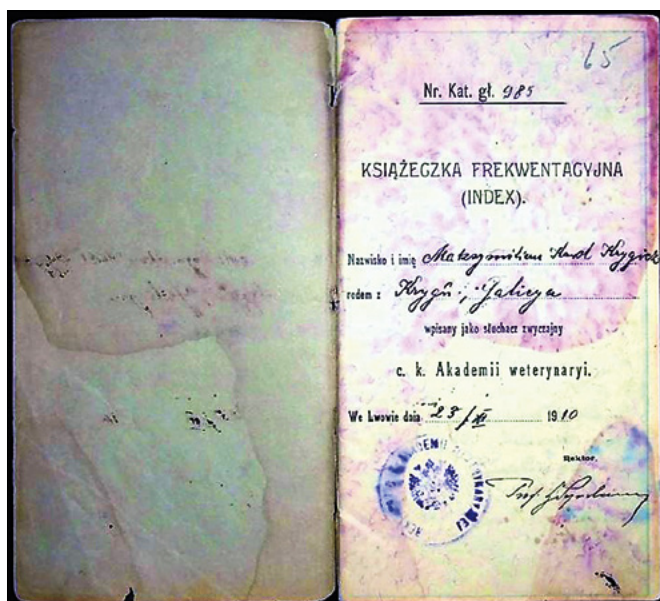 65
Nr. Kat. gł. 985
KSIĄŻECZKA FREKWENTACYJNA
(INDEX).
Nazwisko i imię Maksymilian Karol Krygicz
rodem z Krygu, Galicya
wpisany jako słuchacz zwyczajny
c. k. Akademii weterynaryi.
We Lwowie dnia 23/XI 1910
Rektor.
Prof.